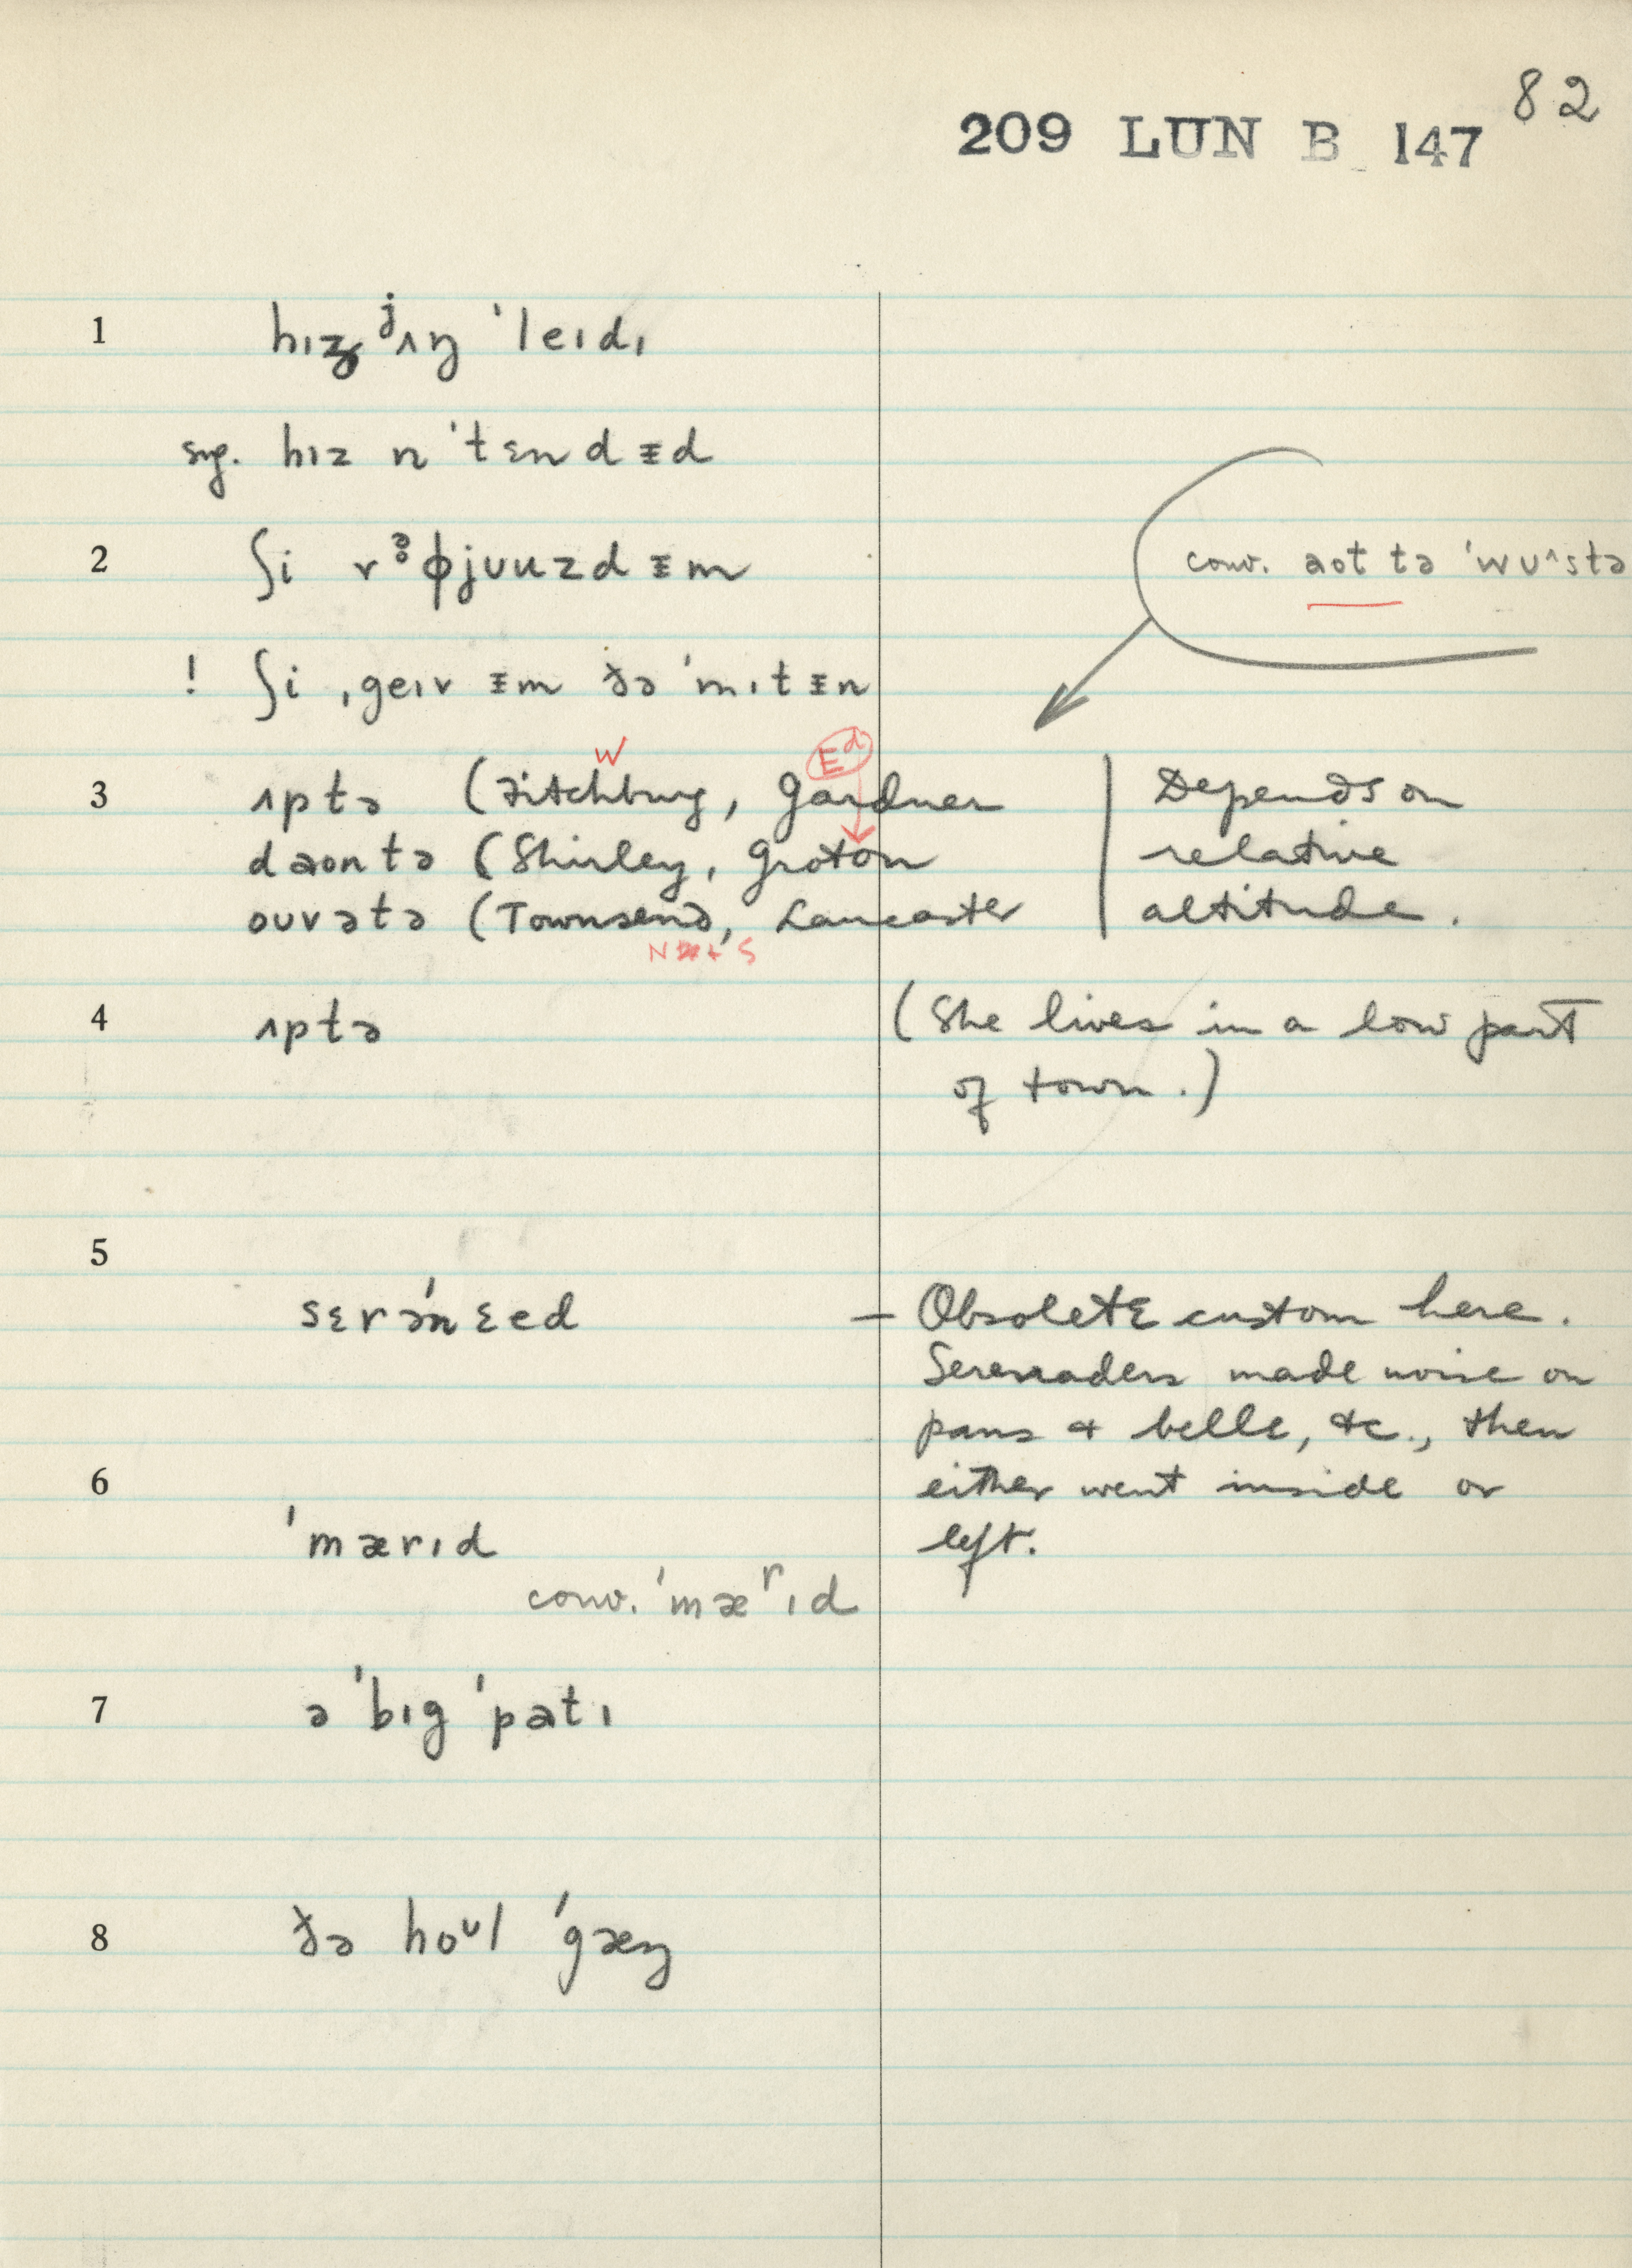 82
209 LUN B 147
1 hɪʒ ʲʌŋ ˈleɪdɪ
sug. hɪz n̩ ˈtɛndᵻd
2 ʃi rə̥ɸjuuzd ᵻm
conv. aot tə ˈwʊ^stə
! ʃi ˌgeɪv ᵻm ðə ˈmɪtᵻn
W Ed
3 ʌptə (Fitchburg, Gardner | Depends on
daontə (Shirley, Groton | relative
ouvətə (Townsend, Lancaster | altitude.
N + S
4 ʌptə (She lives in a low part
of town.)
5
sɛrəˈnɛed — Obsolete custom here.
Serenaders made noise on
pans + bells, etc., then
6 either went inside or
ˈmærɪd left.
conv. ˈmæʳɪd
7 ə ˈbɪg ˈpatɪ
8 ðə hoᶷl ˈgæŋ